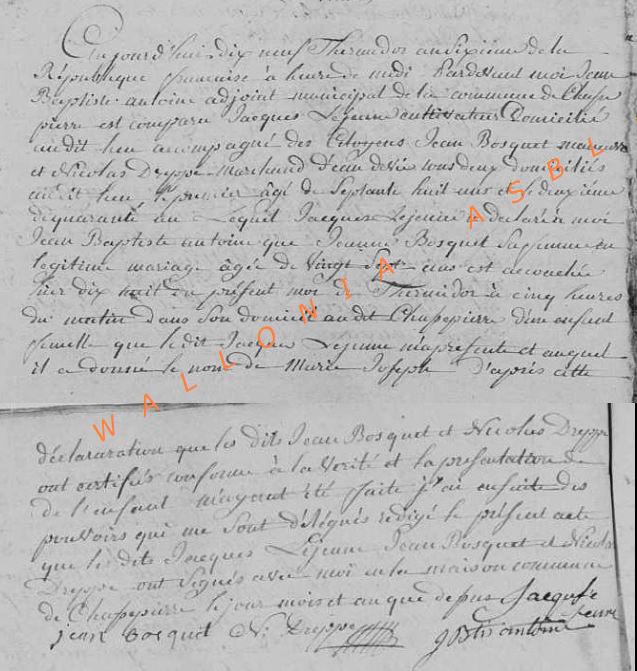 Aujourd'hui dix neuf Thermidor an Sixième de la
République française à heure de midi Pardevant moi Jean
Baptiste antoine adjoint municipal de la commune de Chasse
pierre est comparu Jacques Lejeune cultivateur Domicilié
audit lieu accompagné des Citoyens Jean Bosquet
et Nicolas Dreppe Marchand d'eau de vie tous deux domiciliés
audit lieu, le premier âgé de Septante huit ans et le deuxième
de quarante an Lequel Jacques Lejeune a déclaré à moi
Jean Baptiste antoine que Jeanne Bosquet Sa femme en
légitime mariage âgée de vingt Sept ans est accouchée
hier dix huit du présent mois de Thermidor à cinq heures
du matin dans Son domicile audit Chassepierre d'un enfant
femelle que ledit Jacques Lejeune m'a présenté et auquel
il a donné le nom de Marie Joseph d'après cette
déclararation que les dits Jean Bosquet et Nicolas Dreppe
ont certifiés conforme à la vérité et la présentation de
de l'enfant m'ayant été faite j'ai ensuite des
pouvoirs qui me Sont délégués rédigé le présent acte
que les dits Jacques Lejeune Jean Bosquet et Nicolas
Dreppe ont Signés avec moi en la maison commune
de Chassepierre le jour mois et an que dessus Jacque le
jeune
jean Bosquet N. Dreppe JB antoine
WALLONIA ASBL